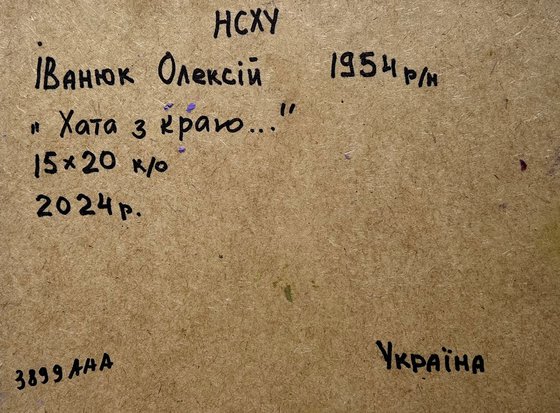 НСХУ
Іванюк Олексій 1954 р/н
„ Хата з краю..."
15×20 к/о
2024 р.
3899 АНА Україна